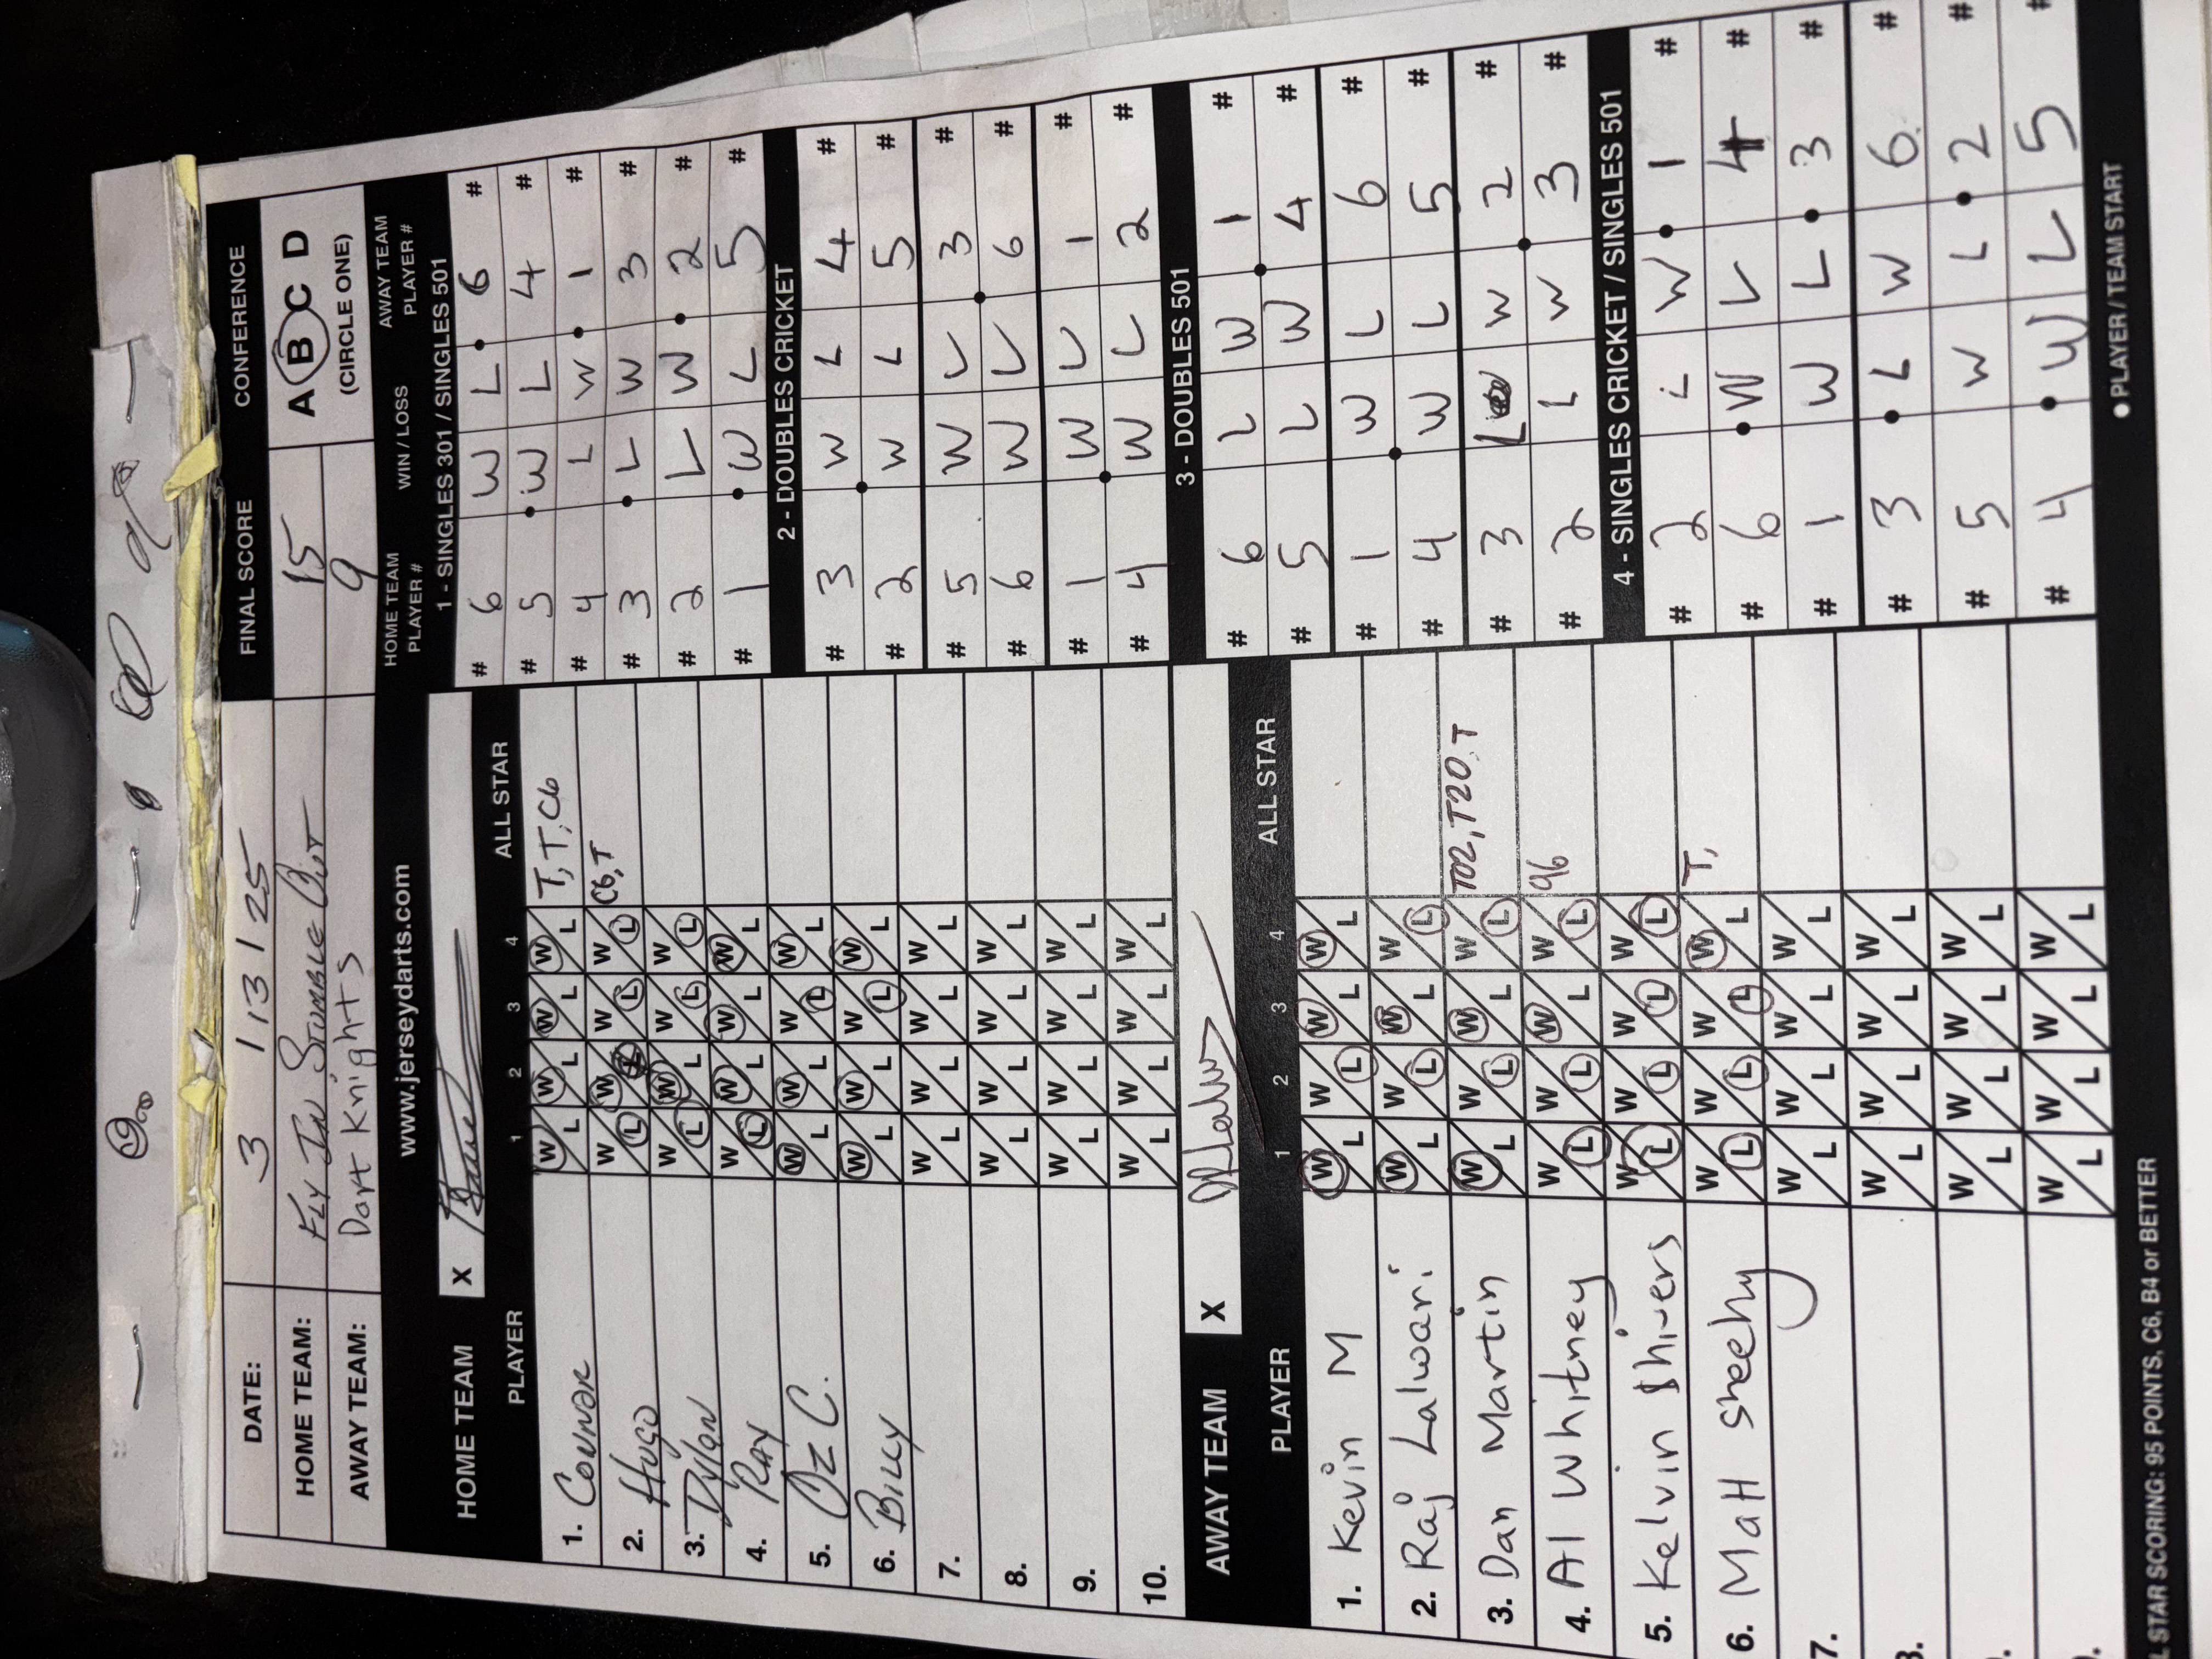 DATE: 3 / 13 / 25 FINAL SCORE CONFERENCE
HOME TEAM: Fly In Stumble Out 15 A B C D
AWAY TEAM: Dart Knights 9 (CIRCLE ONE)
www.jerseydarts.com
HOME TEAM X
PLAYER 1 2 3 4 ALL STAR
1. Connor W/L W/L W/L W/L T, T, C6
2. Hugo W/L W/L W/L W/L C6, T
3. Dylan W/L W/L W/L W/L
4. Ray W/L W/L W/L W/L
5. Oz C. W/L W/L W/L W/L
6. Billy W/L W/L W/L W/L
7. W/L W/L W/L W/L
8. W/L W/L W/L W/L
9. W/L W/L W/L W/L
10. W/L W/L W/L W/L
AWAY TEAM X
PLAYER 1 2 3 4 ALL STAR
1. Kevin M W/L W/L W/L W/L
2. Raj Lalwani W/L W/L W/L W/L
3. Dan Martin W/L W/L W/L W/L T02, T20, T
4. Al Whitney W/L W/L W/L W/L 96
5. Kelvin Shivers W/L W/L W/L W/L
6. Matt Sheehy W/L W/L W/L W/L T,
7. W/L W/L W/L W/L
W/L W/L W/L W/L
W/L W/L W/L W/L
W/L W/L W/L W/L
STAR SCORING: 95 POINTS, C6, B4 or BETTER
HOME TEAM PLAYER # WIN / LOSS AWAY TEAM PLAYER #
1 - SINGLES 301 / SINGLES 501
# 6 W L 6 #
# 5 W L 4 #
# 4 L W 1 #
# 3 L W 3 #
# 2 L W 2 #
# 1 W L 5 #
2 - DOUBLES CRICKET
# 3 W L 4 #
# 2 W L 5 #
# 5 W L 3 #
# 6 W L 6 #
# 1 W L 1 #
# 4 W L 2 #
3 - DOUBLES 501
# 6 L W 1 #
# 5 L W 4 #
# 1 W L 6 #
# 4 W L 5 #
# 3 L W 2 #
# 2 L W 3 #
4 - SINGLES CRICKET / SINGLES 501
# 2 L W 1 #
# 6 W L 4 #
# 1 W L 3 #
# 3 L W 6 #
# 5 W L 2 #
# 4 W L 5 #
● PLAYER / TEAM START